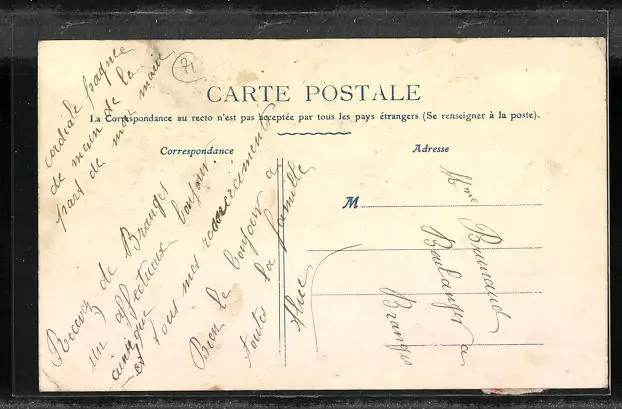 71
CARTE POSTALE
La Correspondance au recto n'est pas acceptée par tous les pays étrangers (Se renseigner à la poste).
Correspondance
Adresse
M
Mme Brunaud
Boulanger a
Branges
Recevez de Branges
un affectueux bonjour.
ainsi que
et tous mes remerciements
Bien le bonjour a
toutes la famille
cordiale
de main de la
part de mon mari